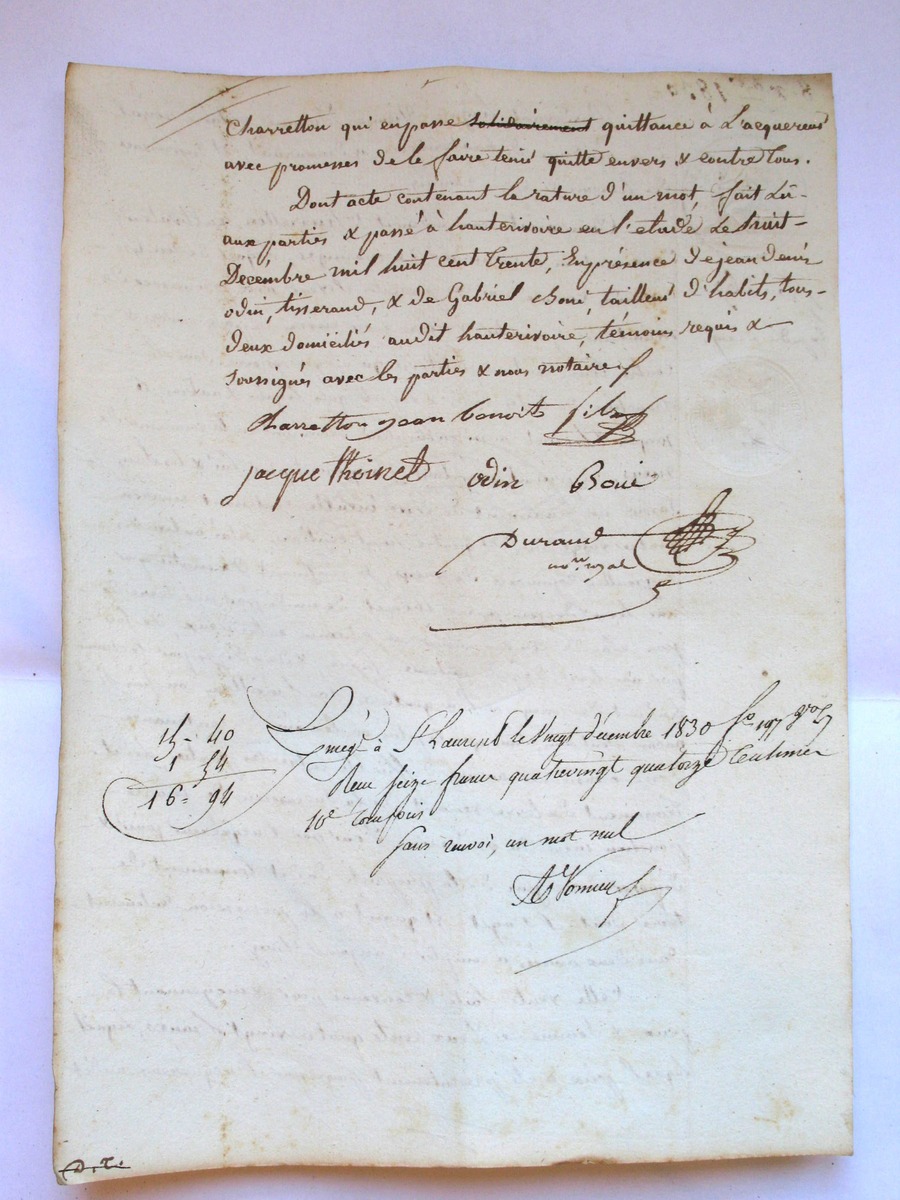 Charretton qui en passe solidairement quittance à L'acquereur
avec promesses de le faire tenir quitte envers & contre tous.
Dont acte contenant la rature d'un mot, fait Lû
aux parties & passé à hauterivoire en l'etude Le huit
Decémbre mil huit cent trente, En présence de jean denis
odin, tisserand, & de Gabriel Boué, tailleur d'habits, tous
deux domiciliés audit hauterivoire, témoins requis &
soussignés avec les parties & nous notaire
Charretton jean benoit fils
jacque thoinet odin Boué
Durand
nore royal
15 - 40
1 54
16 = 94
à St Laurent le vingt décembre 1830 fo 197
Reçu seize francs quatrevingt quatorze centimes
10e compris
Sans renvoi, un mot nul
D. T.